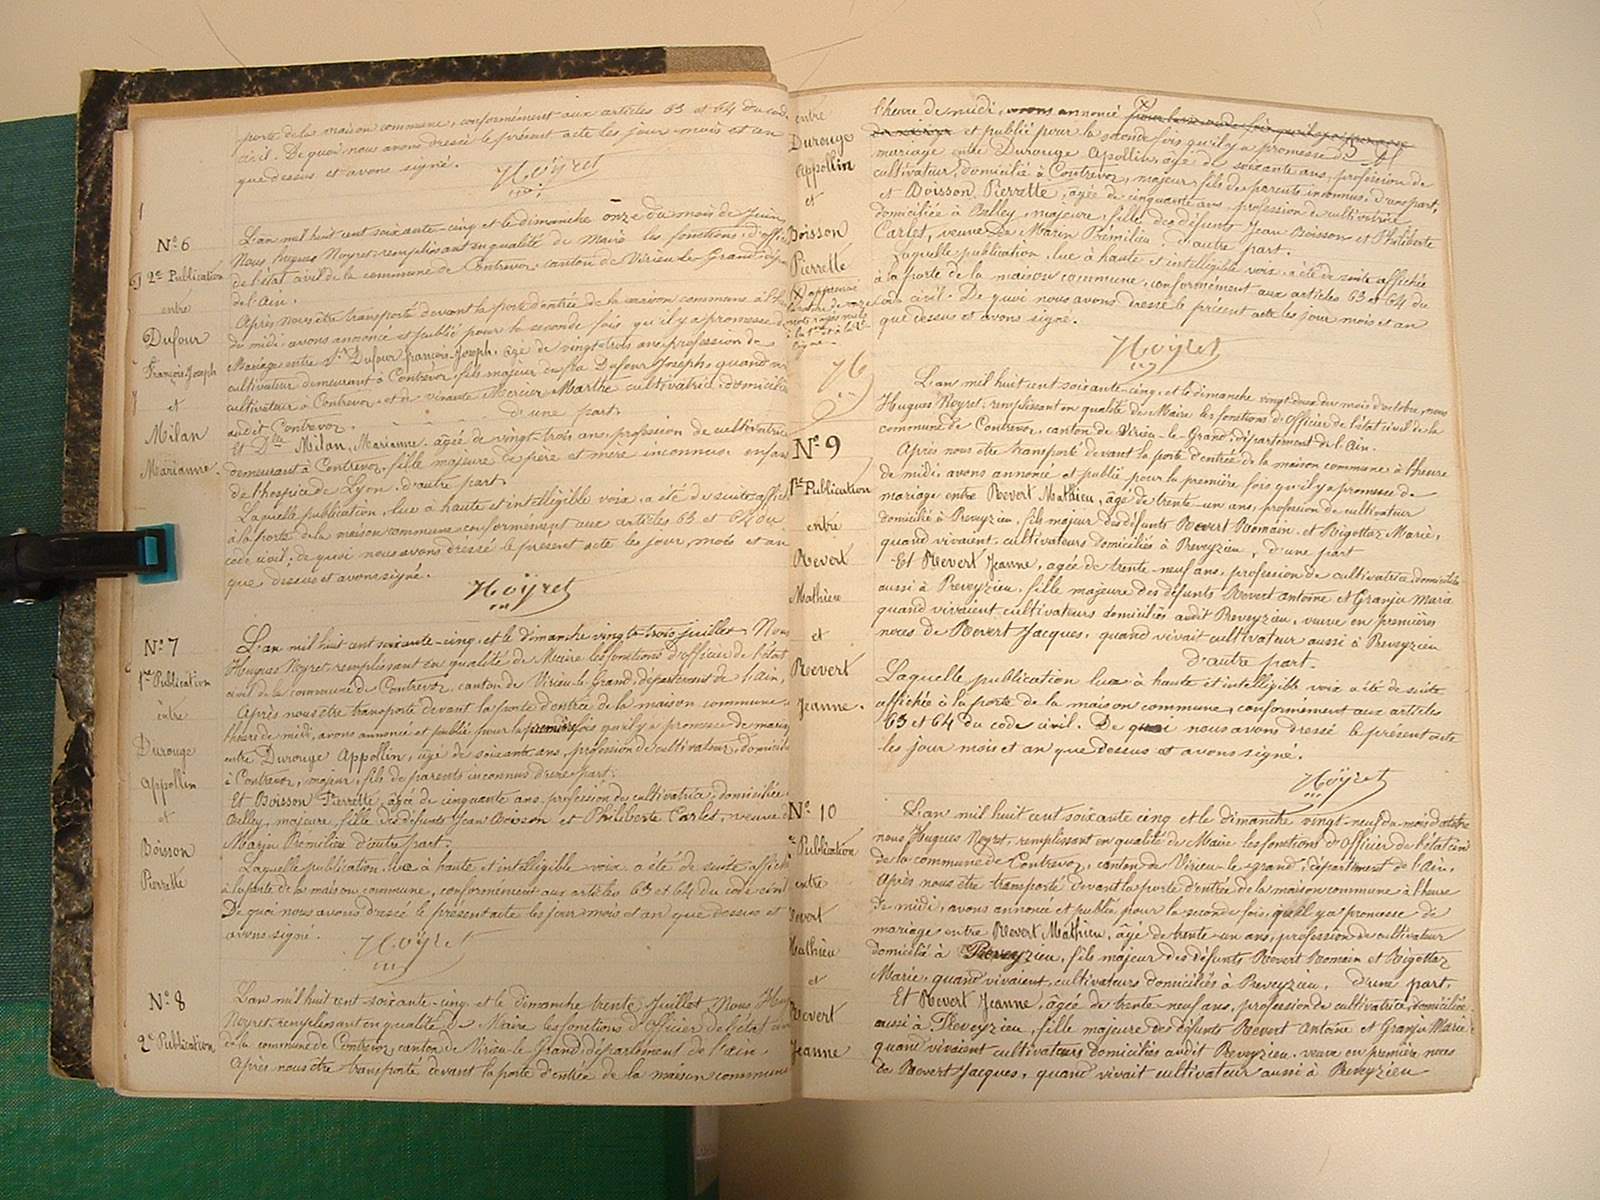 porte de la maison commune, conformément aux articles 63 et 64 du code
civil. De quoi nous avons dressé le présent acte les jour mois et an
que dessus et avons signé.
Noÿret
N°. 6
2e Publication
entre
Dufour
François-Joseph
et
Milan
Marianne.
L'an mil huit cent soixante-cinq et le dimanche onze du mois de Juin
Nous Hugues Noyret remplissant en qualité de Maire les fonctions d'offici
de l'état civil de la commune de Contrevoz canton de Virieu Le Grand dép
de l'Ain.
Après nous être transporté devant la porte d'entrée de la maison commune à l'h
de midi, avons annoncé et publié pour la seconde fois qu'il y a promesse d
Mariage entre Sr Dufour François-Joseph, âgé de vingt-trois ans, profession de
cultivateur demeurant à Contrevoz, fils majeur de feu Dufour Joseph, quand viv
cultivateur à Contrevoz, et de vivante Mercier Marthe cultivatrice domicilié
audit Contrevoz. d'une part.
Et Dlle Milan, Marianne, âgée de vingt-trois ans, profession de cultivatrice
demeurant à Contrevoz, fille majeure de père et mère inconnus, enfan
de l'hospice de Lyon. d'autre part
Laquelle publication, lue à haute et intelligible voix, a été de suite affich
à la porte de la maison commune conformément aux articles 63 et 64 du
code civil; de quoi nous avons dressé le présent acte les jour, mois et an
que dessus et avons signé.
Noÿret
N°. 7
1re Publication
entre
Durouge
Appollin
et
Boisson
Pierrette
L'an mil huit cent soixante-cinq, et le dimanche vingt-trois juillet, Nous
Hugues Noyret remplissant en qualité de Maire les fonctions d'officier de l'état
civil de la commune de Contrevoz, canton de Virieu-le-Grand, département de l'Ain,
Après nous être transporté devant la porte d'entrée de la maison commune à
l'heure de midi, avons annoncé et publié pour la première fois qu'il y a promesse de mariag
entre Durouge Appollin, âgé de soixante ans, profession de cultivateur, domicilié
à Contrevoz, majeur, fils de parents inconnus d'une part.
Et Boisson Pierrette, âgée de cinquante ans profession de cultivatrice, domiciliée
Belley, majeure, fille des défunts Jean Boisson et Philiberte Carlet, veuve d
Marin Prémilieu d'autre part.
Laquelle publication, lue à haute et intelligible voix a été de suite affich
à la porte de la maison commune, conformément aux articles 63 et 64 du code civil
De quoi nous avons dressé le présent acte les jour mois et an que dessus et
avons signé.
Noÿret
N°. 8
2e Publication
L'an mil huit cent soixante-cinq, et le dimanche trente Juillet Nous Hugu
Noyret, remplissant en qualité de Maire les fonctions d'officier de l'état civ
de la commune de Contrevoz, canton de Virieu-le-Grand, département de l'ain.
Après nous être transporté devant la porte d'entrée de la maison commune
entre
Durouge
Appollin
et
Boisson
Pierrette
(X) approuvé
l'heure de midi, avons annoncé (X)
et publié pour la seconde fois qu'il y a promesse de
mariage entre Durouge Apollin, âgé de soixante ans, profession de
cultivateur, domicilié à Contrevoz, majeur, fils de parents inconnus, d'une part,
et Boisson Pierrette, âgée de cinquante ans profession de cultivatrice
domiciliée à Belley, majeure, fille des défunts Jean Boisson et Philiberte
Carlet, veuve de Marin Prémilieu. d'autre part.
Laquelle publication, lue à haute et intelligible voix, a été de suite affichée
à la porte de la maison commune, conformément aux articles 63 et 64 du
code civil. De quoi nous avons dressé le présent acte les jour mois et an
que dessus et avons signé.
Noÿret
N°. 9
1re Publication
entre
Revert
Mathieu
et
Revert
Jeanne.
L'an mil huit cent soixante-cinq, et le dimanche vingt-deux du mois d'octobre, nous
Hugues Noyret, remplissant en qualité de Maire les fonctions d'Officier de l'état civil de la
commune de Contrevoz, canton de Virieu-le-Grand, département de l'Ain.
Après nous être transporté devant la porte d'entrée de la maison commune à l'heure
de midi, avons annoncé et publié pour la première fois qu'il y a promesse de
mariage entre Revert Mathieu, âgé de trente-un ans, profession de cultivateur
domicilié à Preveyzieu, fils majeur des défunts Revert Romain et Bigottaz Marie,
quand vivaient, cultivateurs domiciliés à Preveyzieu, d'une part
Et Revert Jeanne, âgée de trente-neuf ans, profession de cultivatrice, domiciliée
aussi à Preveyzieu, fille majeure des défunts Revert Antoine et Granju Marie
quand vivaient cultivateurs domiciliés audit Preveyzieu, veuve en premières
noces de Revert Jacques, quand vivait cultivateur aussi à Preveyzieu
d'autre part.
Laquelle publication lue à haute et intelligible voix a été de suite
affichée à la porte de la maison commune, conformément aux articles
63 et 64 du code civil. De quoi nous avons dressé le présent acte
les jour mois et an que dessus et avons signé.
Noÿret
N°. 10
Publication
entre
Revert
Mathieu
et
Revert
Jeanne
L'an mil huit cent soixante cinq et le dimanche vingt-neuf du mois d'octobre
nous Hugues Noyret, remplissant en qualité de Maire les fonctions d'Officier de l'état civil
de la commune de Contrevoz, canton de Virieu-le-grand, département de l'Ain.
Après nous être transporté devant la porte d'entrée de la maison commune à l'heure
de midi, avons annoncé et publié pour la seconde fois, qu'il y a promesse de
mariage entre Revert Mathieu, âgé de trente-un ans, profession de cultivateur
domicilié à Preveyzieu, fils majeur des défunts Revert Romain et Bigottaz
Marie, quand vivaient, cultivateurs domiciliés à Preveyzieu, d'une part,
Et Revert Jeanne, âgée de trente neuf ans, profession de cultivatrice, domiciliée
aussi à Preveyzieu, fille majeure des défunts Revert Antoine et Granju Marie
quand vivaient cultivateurs domiciliés audit Preveyzieu, veuve en première noces
de Revert Jacques, quand vivait cultivateur aussi à Preveyzieu